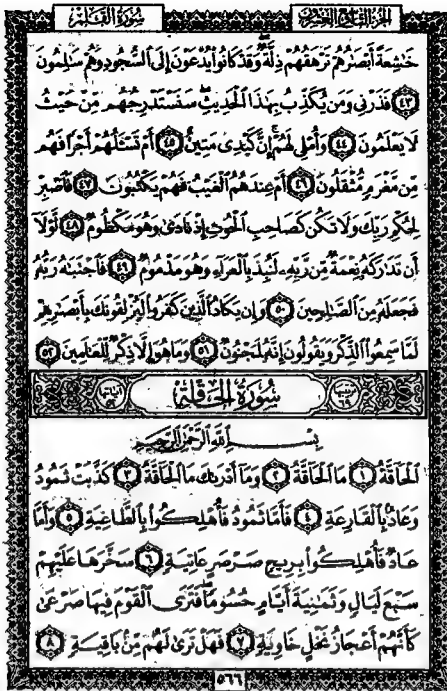 الجزء التاسع والعشرون
سورة القلم
خَاشِعَةً أَبْصَارُهُمْ تَرْهَقُهُمْ ذِلَّةٌ وَقَدْ كَانُوا يُدْعَوْنَ إِلَى السُّجُودِ وَهُمْ سَالِمُونَ
﴿٤٣﴾ فَذَرْنِي وَمَن يُكَذِّبُ بِهَذَا الْحَدِيثِ سَنَسْتَدْرِجُهُم مِّنْ حَيْثُ
لَا يَعْلَمُونَ ﴿٤٤﴾ وَأُمْلِي لَهُمْ إِنَّ كَيْدِي مَتِينٌ ﴿٤٥﴾ أَمْ تَسْأَلُهُمْ أَجْرًا فَهُم
مِّن مَّغْرَمٍ مُّثْقَلُونَ ﴿٤٦﴾ أَمْ عِندَهُمُ الْغَيْبُ فَهُمْ يَكْتُبُونَ ﴿٤٧﴾ فَاصْبِرْ
لِحُكْمِ رَبِّكَ وَلَا تَكُن كَصَاحِبِ الْحُوتِ إِذْ نَادَى وَهُوَ مَكْظُومٌ ﴿٤٨﴾ لَّوْلَا
أَن تَدَارَكَهُ نِعْمَةٌ مِّن رَّبِّهِ لَنُبِذَ بِالْعَرَاءِ وَهُوَ مَذْمُومٌ ﴿٤٩﴾ فَاجْتَبَاهُ رَبُّهُ
فَجَعَلَهُ مِنَ الصَّالِحِينَ ﴿٥٠﴾ وَإِن يَكَادُ الَّذِينَ كَفَرُوا لَيُزْلِقُونَكَ بِأَبْصَارِهِمْ
لَمَّا سَمِعُوا الذِّكْرَ وَيَقُولُونَ إِنَّهُ لَمَجْنُونٌ ﴿٥١﴾ وَمَا هُوَ إِلَّا ذِكْرٌ لِّلْعَالَمِينَ ﴿٥٢﴾
سُورَةُ الْحَاقَّةِ
بِسْمِ اللَّهِ الرَّحْمَنِ الرَّحِيمِ
الْحَاقَّةُ ﴿١﴾ مَا الْحَاقَّةُ ﴿٢﴾ وَمَا أَدْرَاكَ مَا الْحَاقَّةُ ﴿٣﴾ كَذَّبَتْ ثَمُودُ
وَعَادٌ بِالْقَارِعَةِ ﴿٤﴾ فَأَمَّا ثَمُودُ فَأُهْلِكُوا بِالطَّاغِيَةِ ﴿٥﴾ وَأَمَّا
عَادٌ فَأُهْلِكُوا بِرِيحٍ صَرْصَرٍ عَاتِيَةٍ ﴿٦﴾ سَخَّرَهَا عَلَيْهِمْ
سَبْعَ لَيَالٍ وَثَمَانِيَةَ أَيَّامٍ حُسُومًا فَتَرَى الْقَوْمَ فِيهَا صَرْعَى
كَأَنَّهُمْ أَعْجَازُ نَخْلٍ خَاوِيَةٍ ﴿٧﴾ فَهَلْ تَرَى لَهُم مِّن بَاقِيَةٍ ﴿٨﴾
٥٦٦